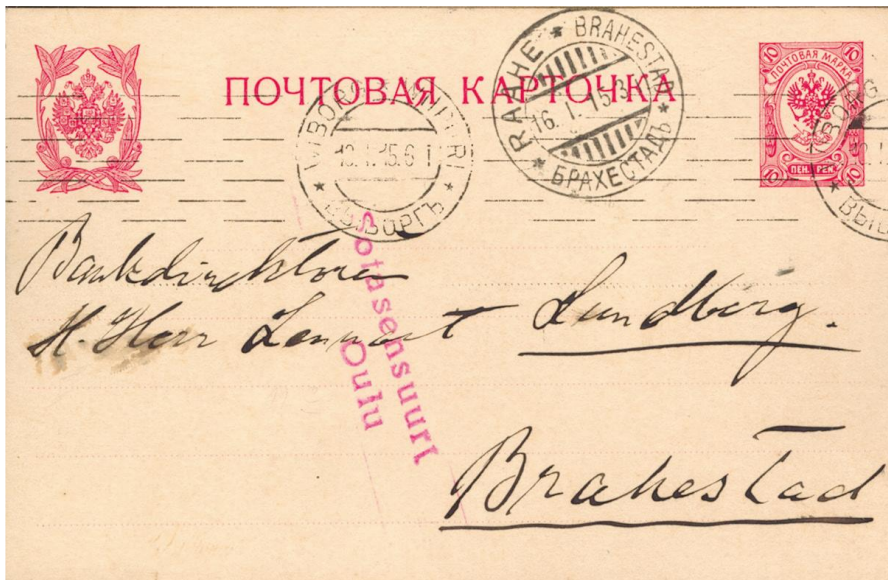 ПОЧТОВАЯ КАРТОЧКА
10 10
ПОЧТОВАЯ МАРКА
10 ПЕН. PEN. 10
RAAHE ★ BRAHESTAD
16. I. 15.
★ БРАХЕСТАДЪ ★
WIBORG VIIPURI
I. 15. 6
ВЫБОРГЪ
WIBORG
ВЫБ
Sotasensuuri
Oulu
Bankdirektören
H. Herr Lennart Lundberg.
Brahestad